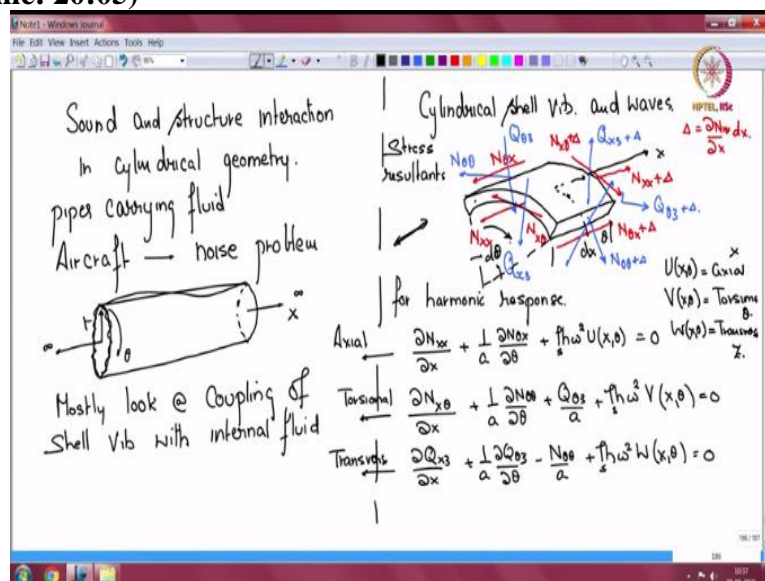 Note1 - Windows Journal
File Edit View Insert Actions Tools Help
NPTEL, IISc
Sound and structure interaction
in cylindrical geometry.
pipes carrying fluid
Aircraft → noise problem
r
θ
∞
∞
x
Mostly look @ Coupling of
Shell Vib with internal fluid
Cylindrical shell vib. and waves
Stress
resultants
Δ = ∂Nxx/∂x dx.
Nθθ
Nθx
Qθ3
Nxθ+Δ
Qx3+Δ
x
Nxx+Δ
Qθ3+Δ.
Nθx+Δ
Nθθ+Δ
Nxx
Nxθ
Qx3
dθ
dx
θ
U(x,θ) = axial x
V(x,θ) = Torsional θ.
W(x,θ) = Transvers z.
for harmonic response.
Axial ∂Nxx/∂x + 1/a ∂Nθx/∂θ + ρs h ω² U(x,θ) = 0
Torsional ∂Nxθ/∂x + 1/a ∂Nθθ/∂θ + Qθ3/a + ρs h ω² V(x,θ) = 0
Transvers ∂Qx3/∂x + 1/a ∂Qθ3/∂θ - Nθθ/a + ρs h ω² W(x,θ) = 0
186 / 187
186
10:37